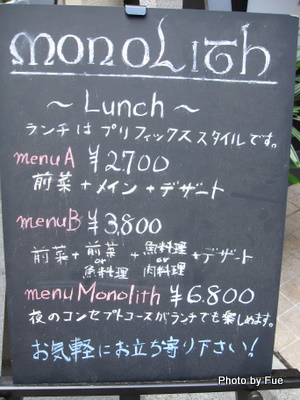 MONOLITH
～ Lunch ～
ランチは プリフィックススタイルです。
menu A ¥2.700
前菜 + メイン + デザート
menu B ¥3,800
前菜 + 前菜 or 魚料理 + 魚料理 or 肉料理 + デザート
menu Monolith ¥6.800
夜のコンセプトコースがランチでも楽しめます。
お気軽にお立ち寄り下さい!
Photo by Fue